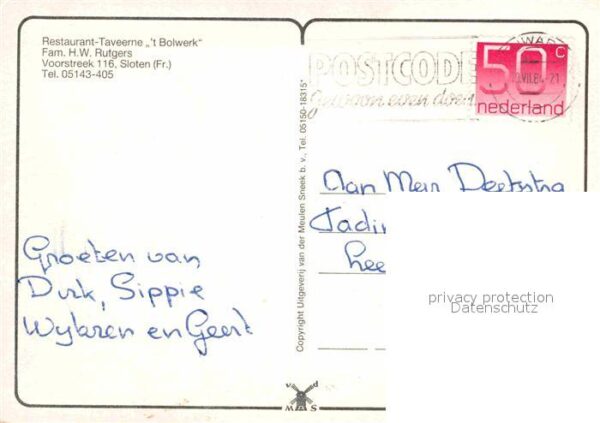 Restaurant-Taveerne „'t Bolwerk"
Fam. H.W. Rutgers
Voorstreek 116, Sloten (Fr.)
Tel. 05143-405
Groeten van
Dirk, Sippie
Wybren en Geert
Copyright Uitgeverij van der Meulen Sneek b.v., Tel. 05150-18315*
v d
MAS
POSTCODE
gewoon even doen
50 c
nederland
Aan Meir Deetstra
privacy protection
Datenschutz